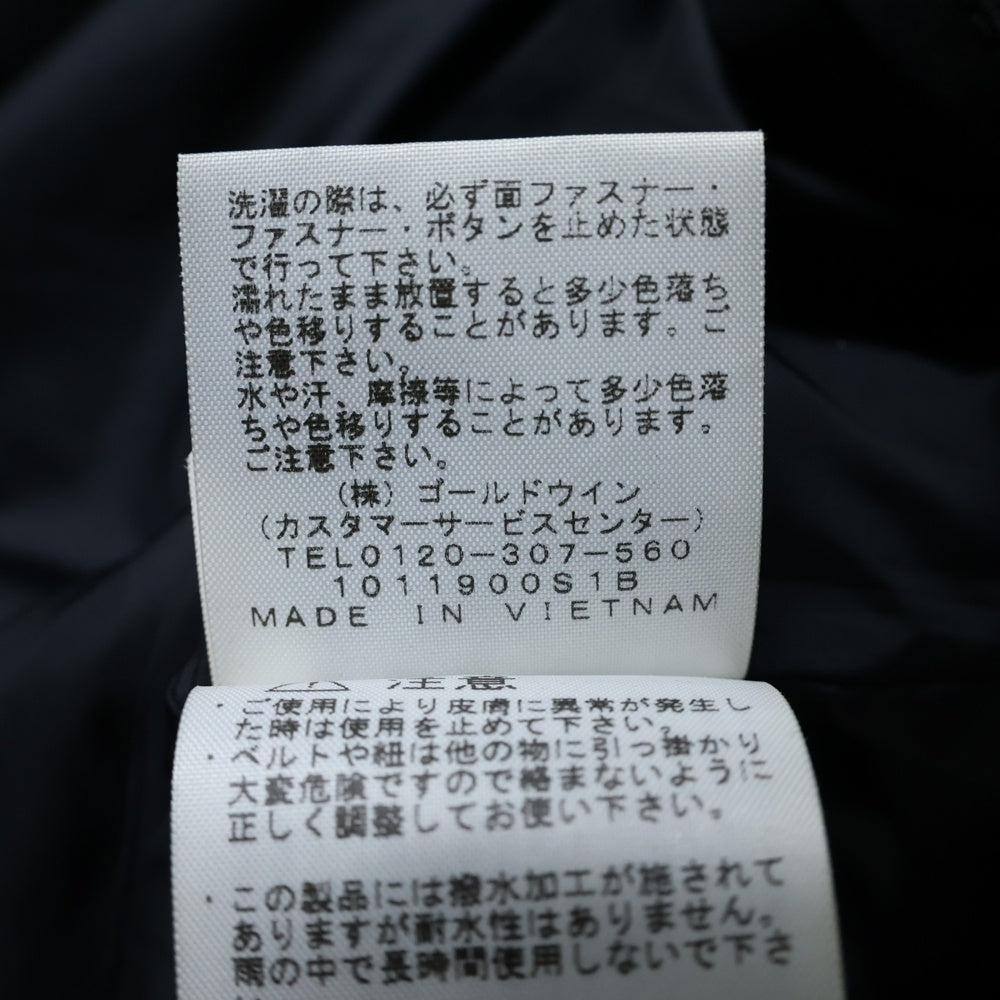 洗濯の際は、必ず面ファスナー・
ファスナー・ボタンを止めた状態
で行って下さい。
濡れたまま放置すると多少色落ち
や色移りすることがあります。ご
注意下さい。
水や汗、摩擦等によって多少色落
ちや色移りすることがあります。
ご注意下さい。
（株）ゴールドウイン
（カスタマーサービスセンター）
TEL0120-307-560
1011900S1B
MADE IN VIETNAM
注意
・ご使用により皮膚に異常が発生し
た時は使用を止めて下さい。
・ベルトや紐は他の物に引っ掛かり
大変危険ですので絡まないように
正しく調整してお使い下さい。
・この製品には撥水加工が施されて
ありますが耐水性はありません。
雨の中で長時間使用しないで下さ